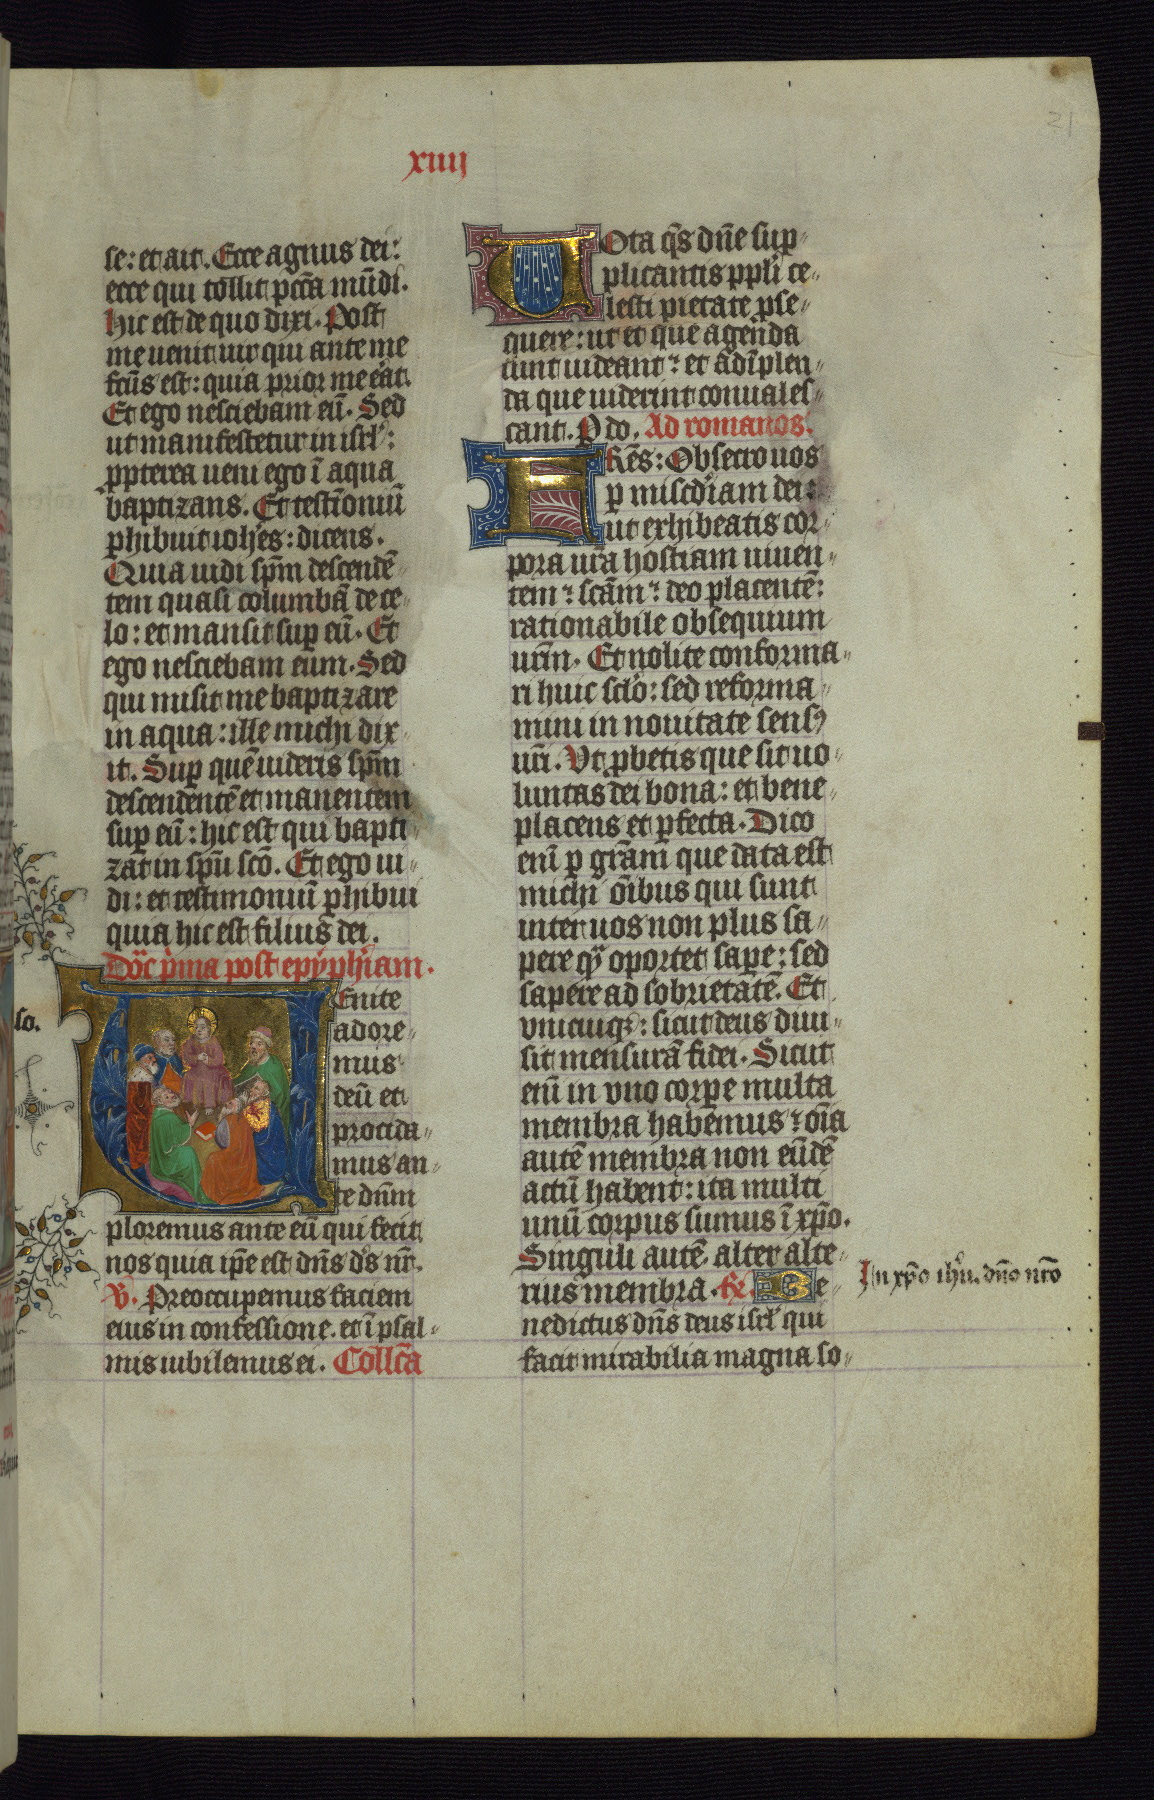 xiiij
21
se: et ait. Ecce agnus dei:
ecce qui tollit pctā mūdi.
Hic est de quo dixi. Post
me uenit uir qui ante me
fctūs est: quia prior me eāt.
Et ego nesciebam eū. Sed
ut manifestetur in isrl':
ppterea ueni ego ī aqua
baptizans. Et testīoniū
phibuit ioh'es: dicens.
Quia uidi spm descendē„
tem quasi columbā de ce„
lo: et mansit sup eū. Et
ego nesciebam eum. Sed
qui misit me baptizare
in aqua: ille michi dix„
it. Sup quē uideris spm
descendentē et manentem
sup eū: hic est qui bapti„
zat in spū scō. Et ego ui„
di: et testimoniū phibui
quia hic est filius dei.
Dōc p'ma post epyph'iam.
Venite
adore„
mus
deū et
procida„
mus an„
te dnm
ploremus ante eū qui fecit
nos quia ip̄e est dn̄s d's nr̄.
V. Preoccupemus faciem
eius in confessione. et ī psal„
mis iubilemus ei. Collc̄a
Vota q̄s dn̄e sup„
plicantis ppli ce„
lesti pietate pse„
quere: ut et que agenda
sunt uideant: et adīplen„
da que uiderint conuales„
cant. P do. Ad romanos.
Frēs: Obsecro uos
p miscd'iam dei:
ut exhibeatis cor„
pora ur̄a hostiam uiuen„
tem: scām: deo placentē:
rationabile obsequium
ur̄m. Et nolite conforma„
ri huic sclo: sed reforma„
mini in nouitate sensꝯ
ur̄i. Vt pbetis que sit uo„
luntas dei bona: et bene„
placens et pfecta. Dico
enī p grām que data est
michi ōibus qui sunt
inter uos non plus sa„
pere q̄ oportet sape: sed
sapere ad sobrietatē. Et
vnicuiqꝫ: sicut deus diui„
sit mensurā fidei. Sicut
enī in vno corpe multa
membra habemus: oīa
autē membra non eūdē
actū habent: ita multi
unū corpus sumus ī xpo.
Singuli autē alter alte„
rius membra. R. Be„
nedictus dn̄s deus isrl' qui
facit mirabilia magna so„
In xpō ihū. dn̄o nr̄o
so.